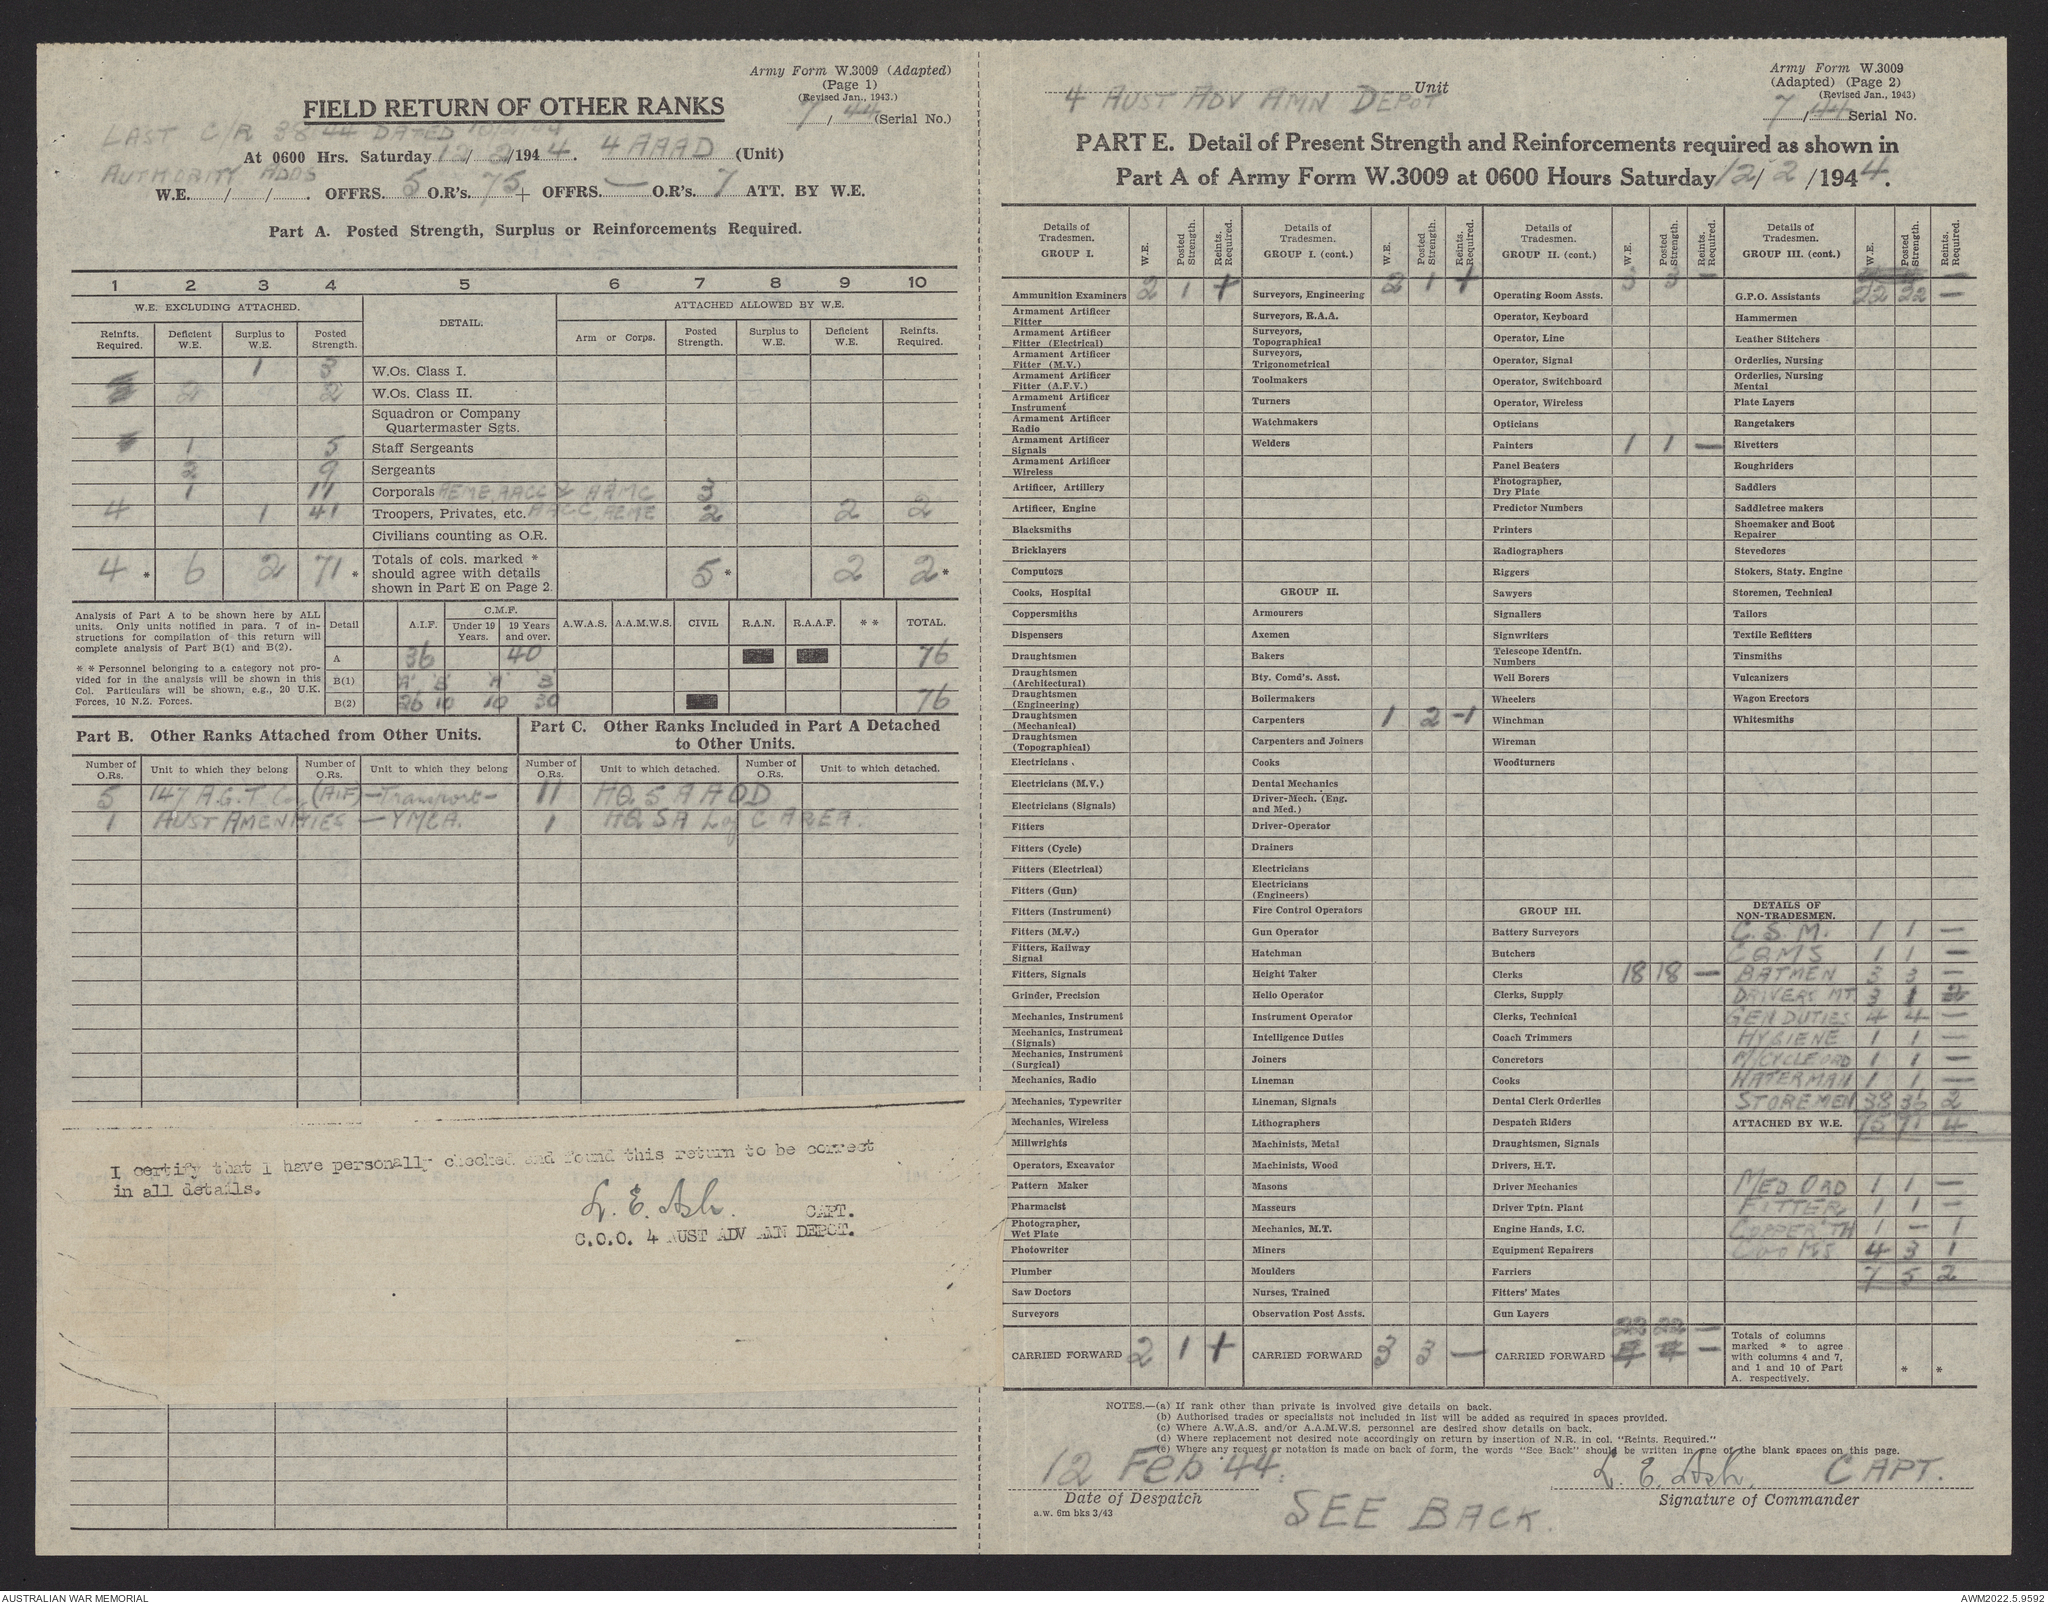 Army Form W.3009 (Adapted)
(Page 1)
(Revised Jan., 1943.)
FIELD RETURN OF OTHER RANKS
7 / 44 (Serial No.)
LAST C/R 38 44 DATED
At 0600 Hrs. Saturday 12 / 2 /194 4. 4 AAAD (Unit)
AUTHORITY ADOS
W.E. / / . OFFRS. 5 O.R's. 75 + OFFRS. — O.R's. 7 ATT. BY W.E.
Part A. Posted Strength, Surplus or Reinforcements Required.
1 2 3 4 5 6 7 8 9 10
W.E. EXCLUDING ATTACHED. DETAIL. ATTACHED ALLOWED BY W.E.
Reinfts. Required. Deficient W.E. Surplus to W.E. Posted Strength. Arm or Corps. Posted Strength. Surplus to W.E. Deficient W.E. Reinfts. Required.
1 3 W.Os. Class I.
2 2 W.Os. Class II.
Squadron or Company
Quartermaster Sgts.
1 5 Staff Sergeants
2 9 Sergeants
1 11 Corporals AEME, AACC & AAMC 3
4 1 41 Troopers, Privates, etc. AACC, AEME 2 2 2
Civilians counting as O.R.
4 * 6 2 71 * Totals of cols. marked * should agree with details shown in Part E on Page 2. 5 * 2 2 *
Analysis of Part A to be shown here by ALL
units. Only units notified in para. 7 of in-
structions for compilation of this return will
complete analysis of Part B(1) and B(2).
* * Personnel belonging to a category not pro-
vided for in the analysis will be shown in this
Col. Particulars will be shown, e.g., 20 U.K.
Forces, 10 N.Z. Forces.
Detail A.I.F. C.M.F. Under 19 Years. 19 Years and over. A.W.A.S. A.A.M.W.S. CIVIL R.A.N. R.A.A.F. * * TOTAL.
A 36 40 76
B(1) 'A' 'B' 'A' 'B'
B(2) 26 10 10 30 76
Part B. Other Ranks Attached from Other Units.
Part C. Other Ranks Included in Part A Detached
to Other Units.
Number of O.Rs. Unit to which they belong Number of O.Rs. Unit to which they belong Number of O.Rs. Unit to which detached. Number of O.Rs. Unit to which detached.
5 147 A.G.T. Coy (AIF) — Transport — 11 HQ 5 AAOD
1 AUST AMENITIES — YMCA. 1 HQ SA L of C AREA.
I certify that I have personally checked and found this return to be correct
in all details.
L. E. Ash. CAPT.
C.O.O. 4 AUST ADV AMN DEPOT.
Army Form W.3009
(Adapted) (Page 2)
(Revised Jan., 1943)
4 AUST ADV AMN DEPOT Unit
7 / 44 Serial No.
PART E. Detail of Present Strength and Reinforcements required as shown in
Part A of Army Form W.3009 at 0600 Hours Saturday 12/ 2 /194 4.
Details of Tradesmen. GROUP I. W.E. Posted Strength. Reints. Required.
Ammunition Examiners 2 1 +
Armament Artificer Fitter
Armament Artificer Fitter (Electrical)
Armament Artificer Fitter (M.V.)
Armament Artificer Fitter (A.F.V.)
Armament Artificer Instrument
Armament Artificer Radio
Armament Artificer Signals
Armament Artificer Wireless
Artificer, Artillery
Artificer, Engine
Blacksmiths
Bricklayers
Computors
Cooks, Hospital
Coppersmiths
Dispensers
Draughtsmen
Draughtsmen (Architectural)
Draughtsmen (Engineering)
Draughtsmen (Mechanical)
Draughtsmen (Topographical)
Electricians
Electricians (M.V.)
Electricians (Signals)
Fitters
Fitters (Cycle)
Fitters (Electrical)
Fitters (Gun)
Fitters (Instrument)
Fitters (M.V.)
Fitters, Railway Signal
Fitters, Signals
Grinder, Precision
Mechanics, Instrument
Mechanics, Instrument (Signals)
Mechanics, Instrument (Surgical)
Mechanics, Radio
Mechanics, Typewriter
Mechanics, Wireless
Millwrights
Operators, Excavator
Pattern Maker
Pharmacist
Photographer, Wet Plate
Photowriter
Plumber
Saw Doctors
Surveyors
CARRIED FORWARD 2 1 +
Details of Tradesmen. GROUP I. (cont.) W.E. Posted Strength. Reints. Required.
2 1 +
Surveyors, Engineering
Surveyors, R.A.A.
Surveyors, Topographical
Surveyors, Trigonometrical
Toolmakers
Turners
Watchmakers
Welders
GROUP II.
Armourers
Axemen
Bakers
Bty. Comd's. Asst.
Boilermakers
Carpenters 1 2 -1
Carpenters and Joiners
Cooks
Dental Mechanics
Driver-Mech. (Eng. and Med.)
Driver-Operator
Drainers
Electricians
Electricians (Engineers)
Fire Control Operators
Gun Operator
Hatchman
Height Taker
Helio Operator
Instrument Operator
Intelligence Duties
Joiners
Lineman
Lineman, Signals
Lithographers
Machinists, Metal
Machinists, Wood
Masons
Masseurs
Mechanics, M.T.
Miners
Moulders
Nurses, Trained
Observation Post Assts.
CARRIED FORWARD 3 3 —
Details of Tradesmen. GROUP II. (cont.) W.E. Posted Strength. Reints. Required.
3 3 —
Operating Room Assts.
Operator, Keyboard
Operator, Line
Operator, Signal
Operator, Switchboard
Operator, Wireless
Opticians
Painters 1 1 —
Panel Beaters
Photographer, Dry Plate
Predictor Numbers
Printers
Radiographers
Riggers
Sawyers
Signallers
Signwriters
Telescope Identfn. Numbers
Well Borers
Wheelers
Winchman
Wireman
Woodturners
GROUP III.
Battery Surveyors
Butchers
Clerks 18 18 —
Clerks, Supply
Clerks, Technical
Coach Trimmers
Concretors
Cooks
Dental Clerk Orderlies
Despatch Riders
Draughtsmen, Signals
Drivers, H.T.
Driver Mechanics
Driver Tptn. Plant
Engine Hands, I.C.
Equipment Repairers
Farriers
Fitters' Mates
Gun Layers
22 22 —
CARRIED FORWARD 4 4 —
Details of Tradesmen. GROUP III. (cont.) W.E. Posted Strength. Reints. Required.
G.P.O. Assistants 22 22 —
Hammermen
Leather Stitchers
Orderlies, Nursing
Orderlies, Nursing Mental
Plate Layers
Rangetakers
Rivetters
Roughriders
Saddlers
Saddletree makers
Shoemaker and Boot Repairer
Stevedores
Stokers, Staty. Engine
Storemen, Technical
Tailors
Textile Refitters
Tinsmiths
Vulcanizers
Wagon Erectors
Whitesmiths
DETAILS OF NON-TRADESMEN.
C. S. M. 1 1 —
CQMS 1 1 —
BATMEN 3 3 —
DRIVERS MT. 3 1 2
GEN DUTIES 4 4 —
HYGIENE 1 1 —
M/CYCLE ORD 1 1 —
WATERMAN 1 1 —
STOREMEN 38 36 2
ATTACHED BY W.E. 75 71 4
MED ORD 1 1 —
FITTER 1 1 —
COPPER'TH 1 — 1
COOKS 4 3 1
7 5 2
Totals of columns marked * to agree with columns 4 and 7, and 1 and 10 of Part A. respectively. * *
NOTES.—(a) If rank other than private is involved give details on back.
(b) Authorised trades or specialists not included in list will be added as required in spaces provided.
(c) Where A.W.A.S. and/or A.A.M.W.S. personnel are desired show details on back.
(d) Where replacement not desired note accordingly on return by insertion of N.R. in col. "Reints. Required."
(e) Where any request or notation is made on back of form, the words "See Back" should be written in one of the blank spaces on this page.
12 Feb 44. L. E. Ash, CAPT.
Date of Despatch Signature of Commander
SEE BACK.
a.w. 6m bks 3/43
AUSTRALIAN WAR MEMORIAL AWM2022.5.9592